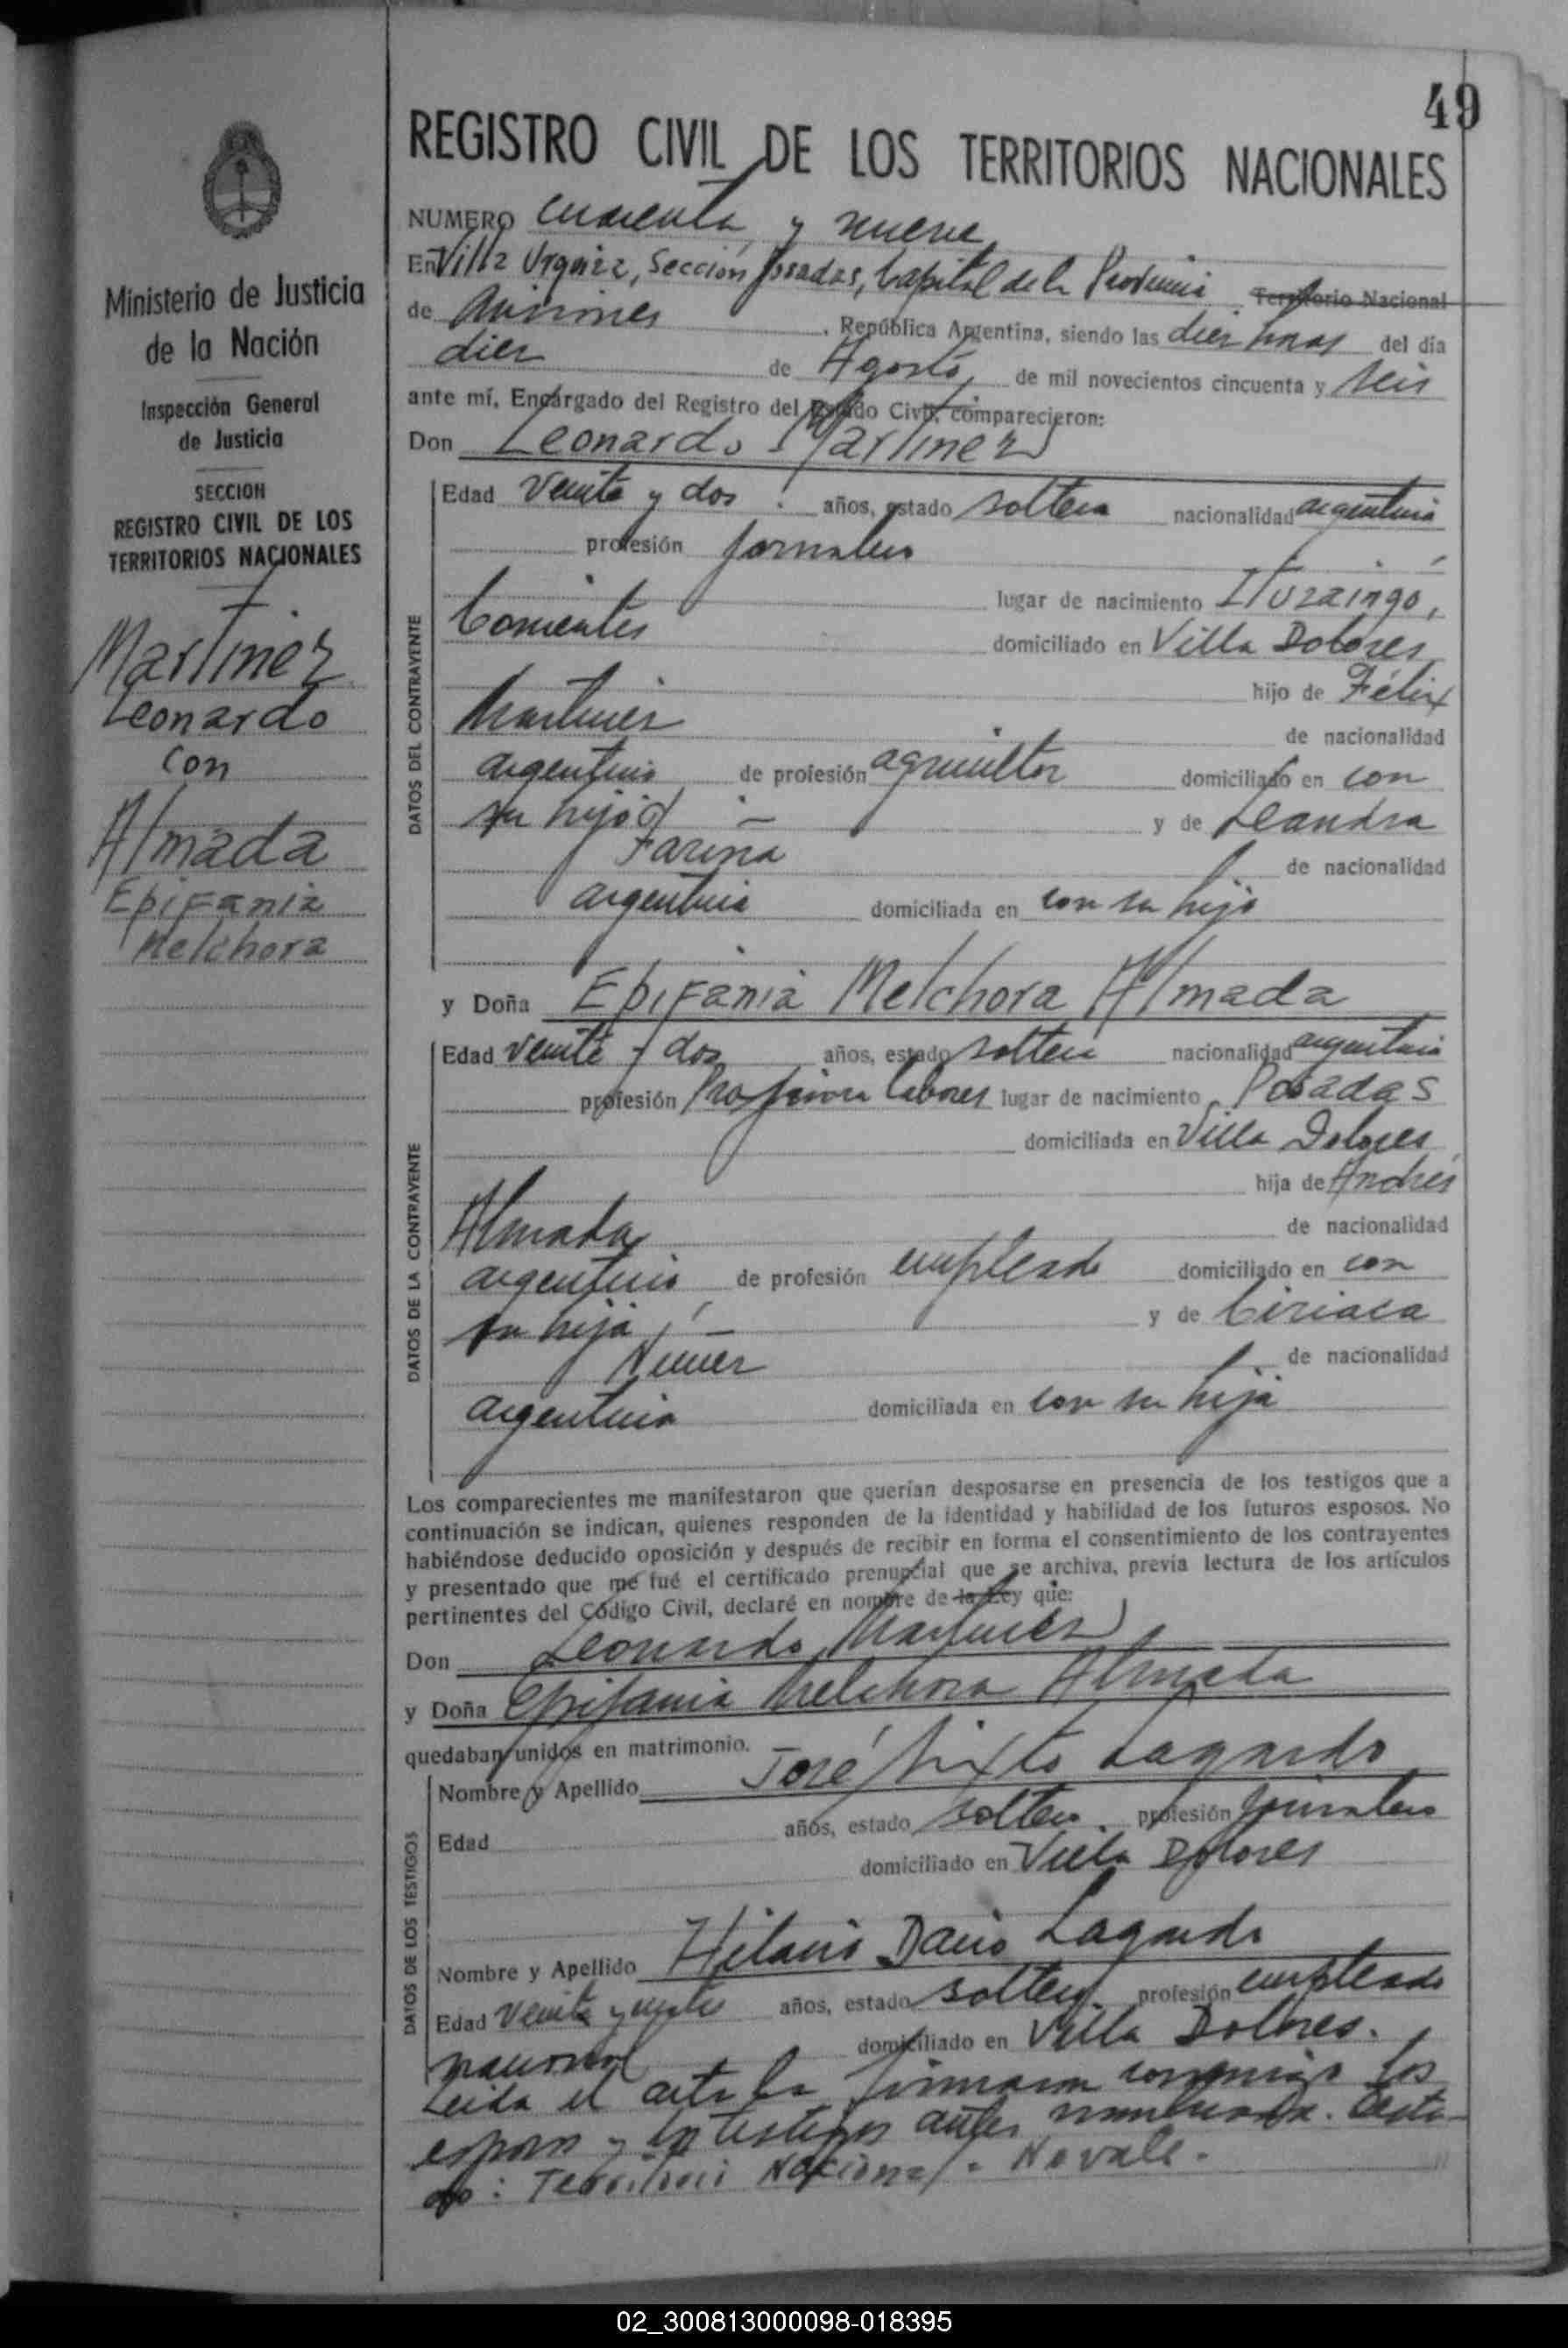 49
REGISTRO CIVIL DE LOS TERRITORIOS NACIONALES
NUMERO cuarenta y nueve
En Villa Urquiza, Sección Posadas, Capital de la Provincia Territorio Nacional
de Misiones, República Argentina, siendo las diez horas del día
diez de Agosto, de mil novecientos cincuenta y seis
ante mí, Encargado del Registro del Estado Civil, comparecieron:
Don Leonardo Martinez
Edad veinte y dos años, estado soltero nacionalidad argentina
profesión jornalero
lugar de nacimiento Ituzaingo,
Corrientes domiciliado en Villa Dolores
hijo de Félix
Martinez de nacionalidad
argentino de profesión agricultor domiciliado en con
su hijo y de Leandra
Farina de nacionalidad
argentina domiciliada en con su hijo
y Doña Epifania Melchora Almada
Edad veinte y dos años, estado soltera nacionalidad argentina
profesión labores lugar de nacimiento Posadas
domiciliada en Villa Dolores
hija de Andrés
Almada de nacionalidad
argentino de profesión empleado domiciliado en con
su hija, y de Ciriaca
de nacionalidad
argentina domiciliada en con su hija
Los comparecientes me manifestaron que querían desposarse en presencia de los testigos que a
continuación se indican, quienes responden de la identidad y habilidad de los futuros esposos. No
habiéndose deducido oposición y después de recibir en forma el consentimiento de los contrayentes
y presentado que me fué el certificado prenupcial que se archiva, previa lectura de los artículos
pertinentes del Código Civil, declaré en nombre de la Ley que:
Don Leonardo Martinez
y Doña Epifania Melchora Almada
quedaban unidos en matrimonio.
Nombre y Apellido José Sixto Lagardo
Edad años, estado soltero profesión jornalero
domiciliado en Villa Dolores
Nombre y Apellido Hilario Dario Lagardo
Edad veinte y años, estado soltero profesión empleado
domiciliado en Villa Dolores.
Leida el acta la firmaron conmigo los
esposos y los testigos antes nombrados. Testa-
do: Territorio Nacional. No vale.
Ministerio de Justicia
de la Nación
Inspección General
de Justicia
SECCION
REGISTRO CIVIL DE LOS
TERRITORIOS NACIONALES
Martinez
Leonardo
con
Almada
Epifania
Melchora
DATOS DEL CONTRAYENTE
DATOS DE LA CONTRAYENTE
DATOS DE LOS TESTIGOS
02_300813000098-018395